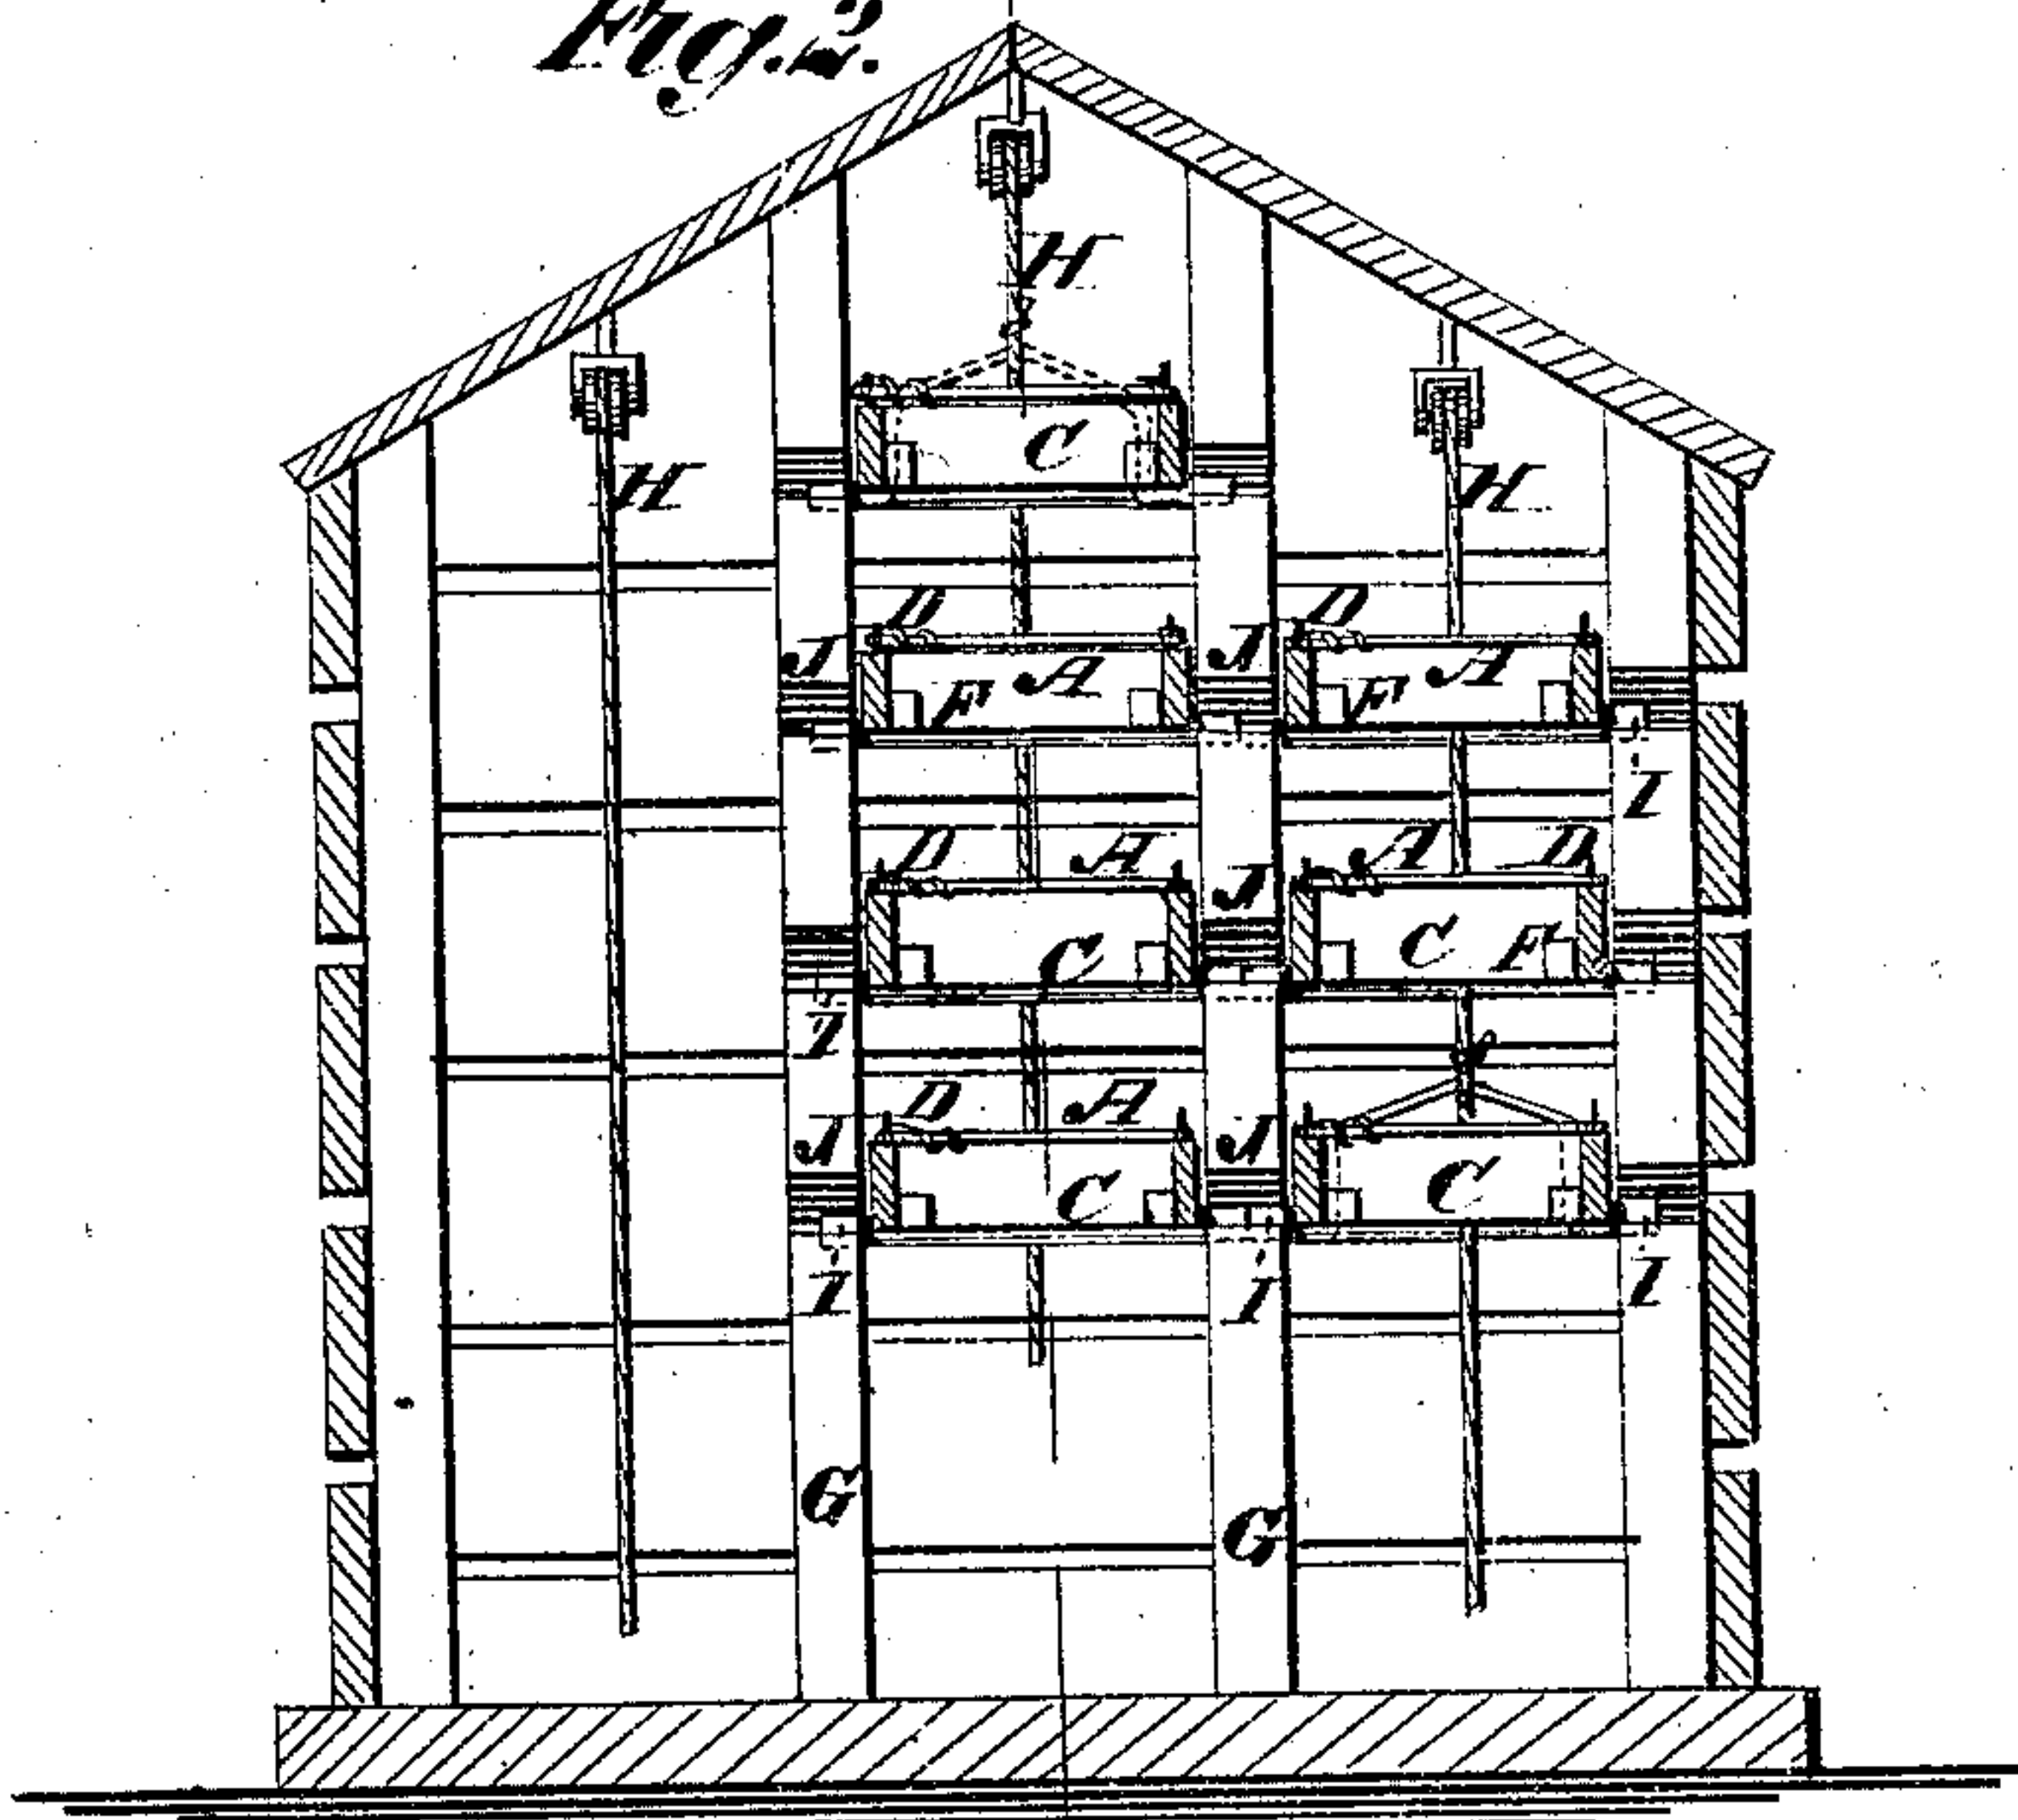 Fig. 2.
H
H H
C
D D
J J
A A
F F
I
D A A D
J
C C F
I
D A
J J
C C
I I I
G G